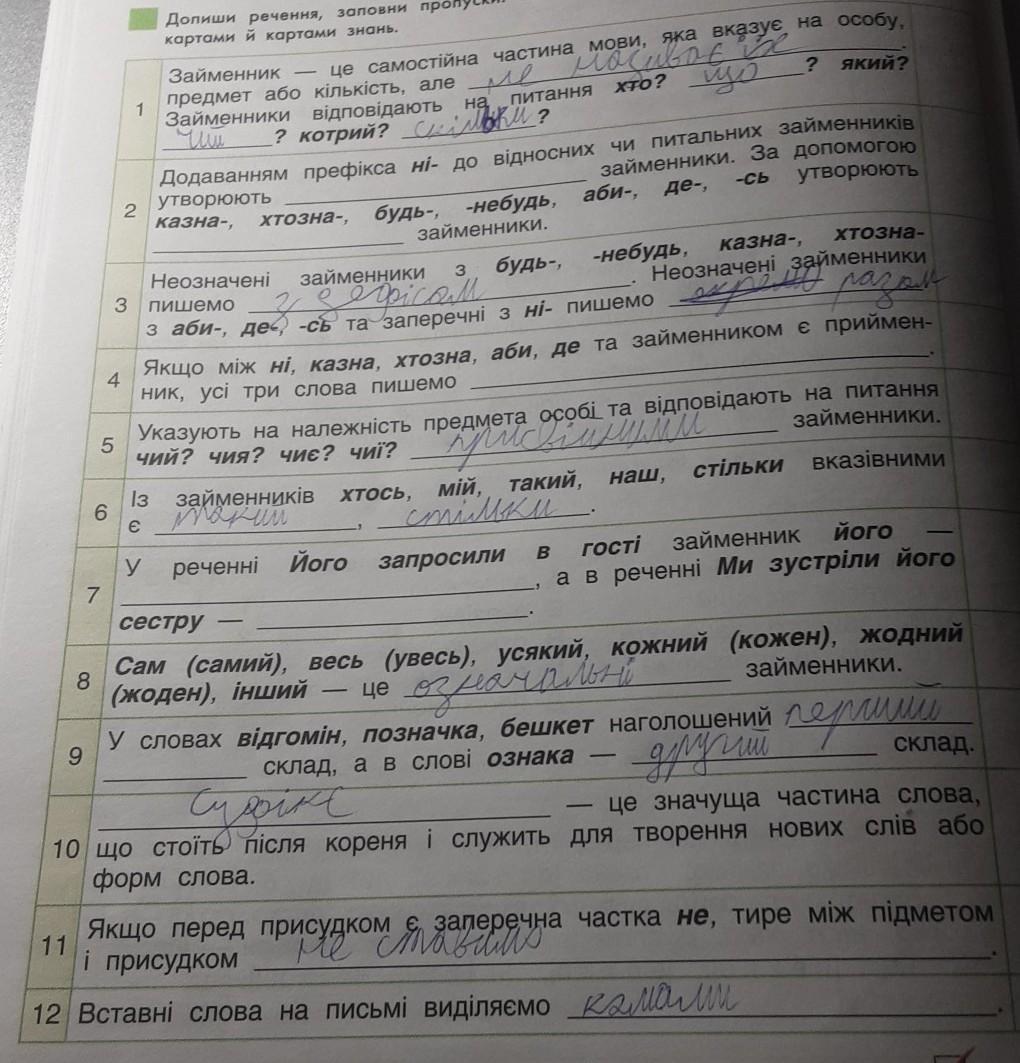 Допиши речення, заповни пропуски.
картами й картами знань.
1 Займенник — це самостійна частина мови, яка вказує на особу,
предмет або кількість, але не називає їх.
Займенники відповідають на питання хто? що ? який?
чий ? котрий? скільки ?
2 Додаванням префікса ні- до відносних чи питальних займенників
утворюють ____ займенники. За допомогою
казна-, хтозна-, будь-, -небудь, аби-, де-, -сь утворюють
____ займенники.
3 Неозначені займенники з будь-, -небудь, казна-, хтозна-
пишемо з дефісом. Неозначені займенники
з аби-, де-, -сь та заперечні з ні- пишемо окремо разом
4 Якщо між ні, казна, хтозна, аби, де та займенником є приймен-
ник, усі три слова пишемо ____.
5 Указують на належність предмета особі та відповідають на питання
чий? чия? чиє? чиї? присвійними займенники.
6 Із займенників хтось, мій, такий, наш, стільки вказівними
є такий, стільки.
7 У реченні Його запросили в гості займенник його —
____, а в реченні Ми зустріли його
сестру — ____.
8 Сам (самий), весь (увесь), усякий, кожний (кожен), жодний
(жоден), інший — це означальні займенники.
9 У словах відгомін, позначка, бешкет наголошений перший
____ склад, а в слові ознака — другий склад.
10 Суфікс — це значуща частина слова,
що стоїть після кореня і служить для творення нових слів або
форм слова.
11 Якщо перед присудком є заперечна частка не, тире між підметом
і присудком не ставимо.
12 Вставні слова на письмі виділяємо комами.